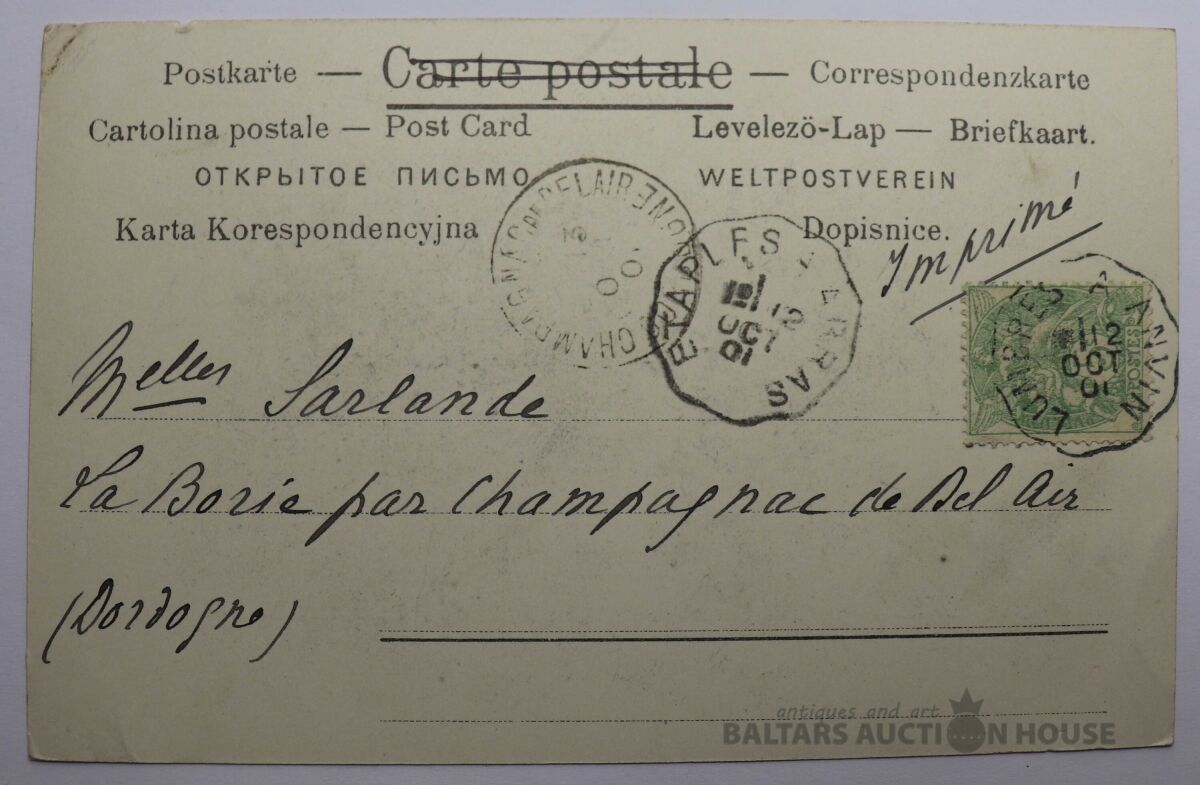 Postkarte — Carte postale — Correspondenzkarte
Cartolina postale — Post Card Levelezö-Lap — Briefkaart.
ОТКРЫТОЕ ПИСЬМО WELTPOSTVEREIN
Karta Korespondencyjna Dopisnice.
Imprimé
ETAPLES A ARRAS
12
OCT
01
LUMBRES A ANVIN
12
OCT
01
POSTES
Melles Sarlande
La Borie par Champagnac de Bel Air
(Dordogne)
antiques and art
BALTARS AUCTION HOUSE